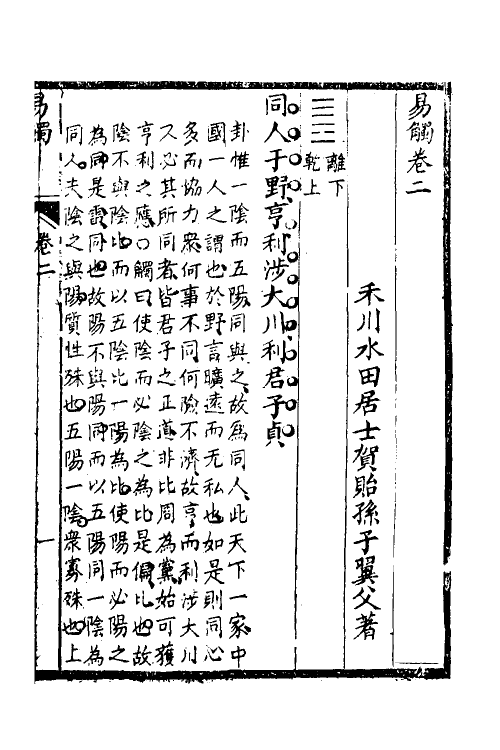 易觸卷二
禾川水田居士賀貽孫子翼父著
離下
乾上
同人于野亨利涉大川利君子貞
卦惟一陰而五陽同與之故為同人此天下一家中
國一人之謂也於野言曠遠而无私也如是則同心
多而協力衆何事不同何險不濟故亨而利涉大川
又必其所同者皆君子之正道非比周為黨始可獲
亨利之應〇觸曰使陰而必陰之為比是偏比也故
陰不與陰比而以五陰比一陽為比使陽而必陽之
為同是雷同也故陽不與陽同而以五陽同一陰為
同人夫陰之與陽質性殊也五陽一陰衆寡殊也上
易觸
卷二
一